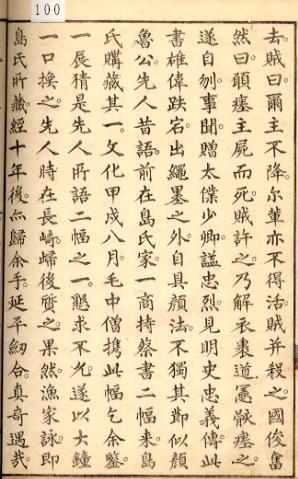 100
去賊曰爾主不降尔輩亦不得活賊并殺之國俊奮
然曰願瘞主屍而死賊許之乃解衣裹道憲骸瘞之
遂自刎事聞贈太僕少卿謚忠烈見明史忠義傳此
書雄偉跌宕出繩墨之外自具顔法不獨其節似顔
魯公先人昔語前在島氏家一商持蔡書二幅来島
氏購藏其一文化甲戌八月毛中僧携此幅乞余鑒
一展猜是先人所語二幅之一懇求不允遂以古鐘
一口換之先人時在長崎歸後質之果然漁家詠即
島氏所藏經十年後亦歸余手延平劒合真奇遇哉